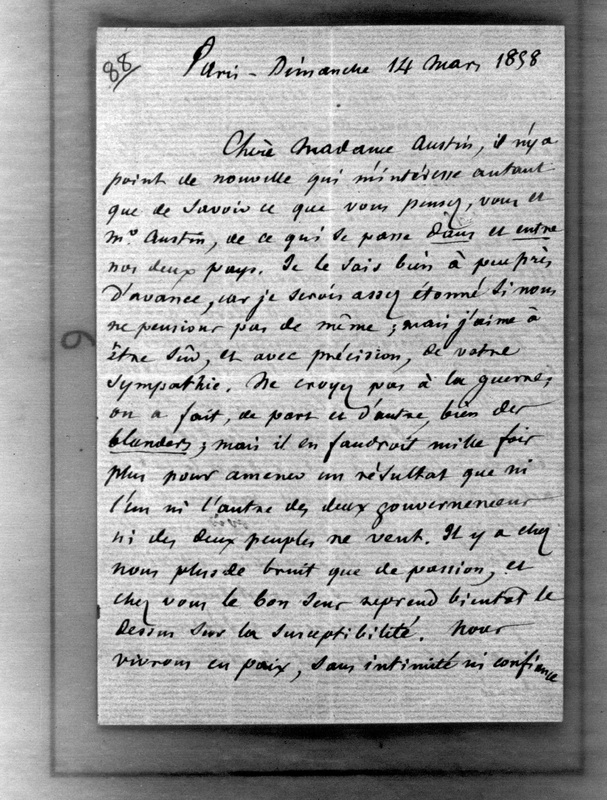 88
Paris - Dimanche 14 Mars 1858
Chère Madame Austin, il n'y a
point de nouvelle qui m'intéresse autant
que de savoir ce que vous pensez, vous et
Mr. Austin, de ce qui se passe dans et entre
nos deux pays. Je le sais bien à peu près
d'avance, car je serois assez étonné si nous
ne pensions pas de même ; mais j'aime à
être sûr, et avec précision, de votre
sympathie. Ne croyez pas à la guerre ;
on a fait, de part et d'autre, bien des
blunders ; mais il en faudroit mille fois
plus pour amener un résultat que ni
l'un ni l'autre des deux gouvernemens
ni des deux peuples ne veut. Il y a chez
nous plus de bruit que de passion, et
chez vous le bon sens reprend bientot le
dessus sur la susceptibilité. Nous
vivrons en paix, sans intimité ni confiance